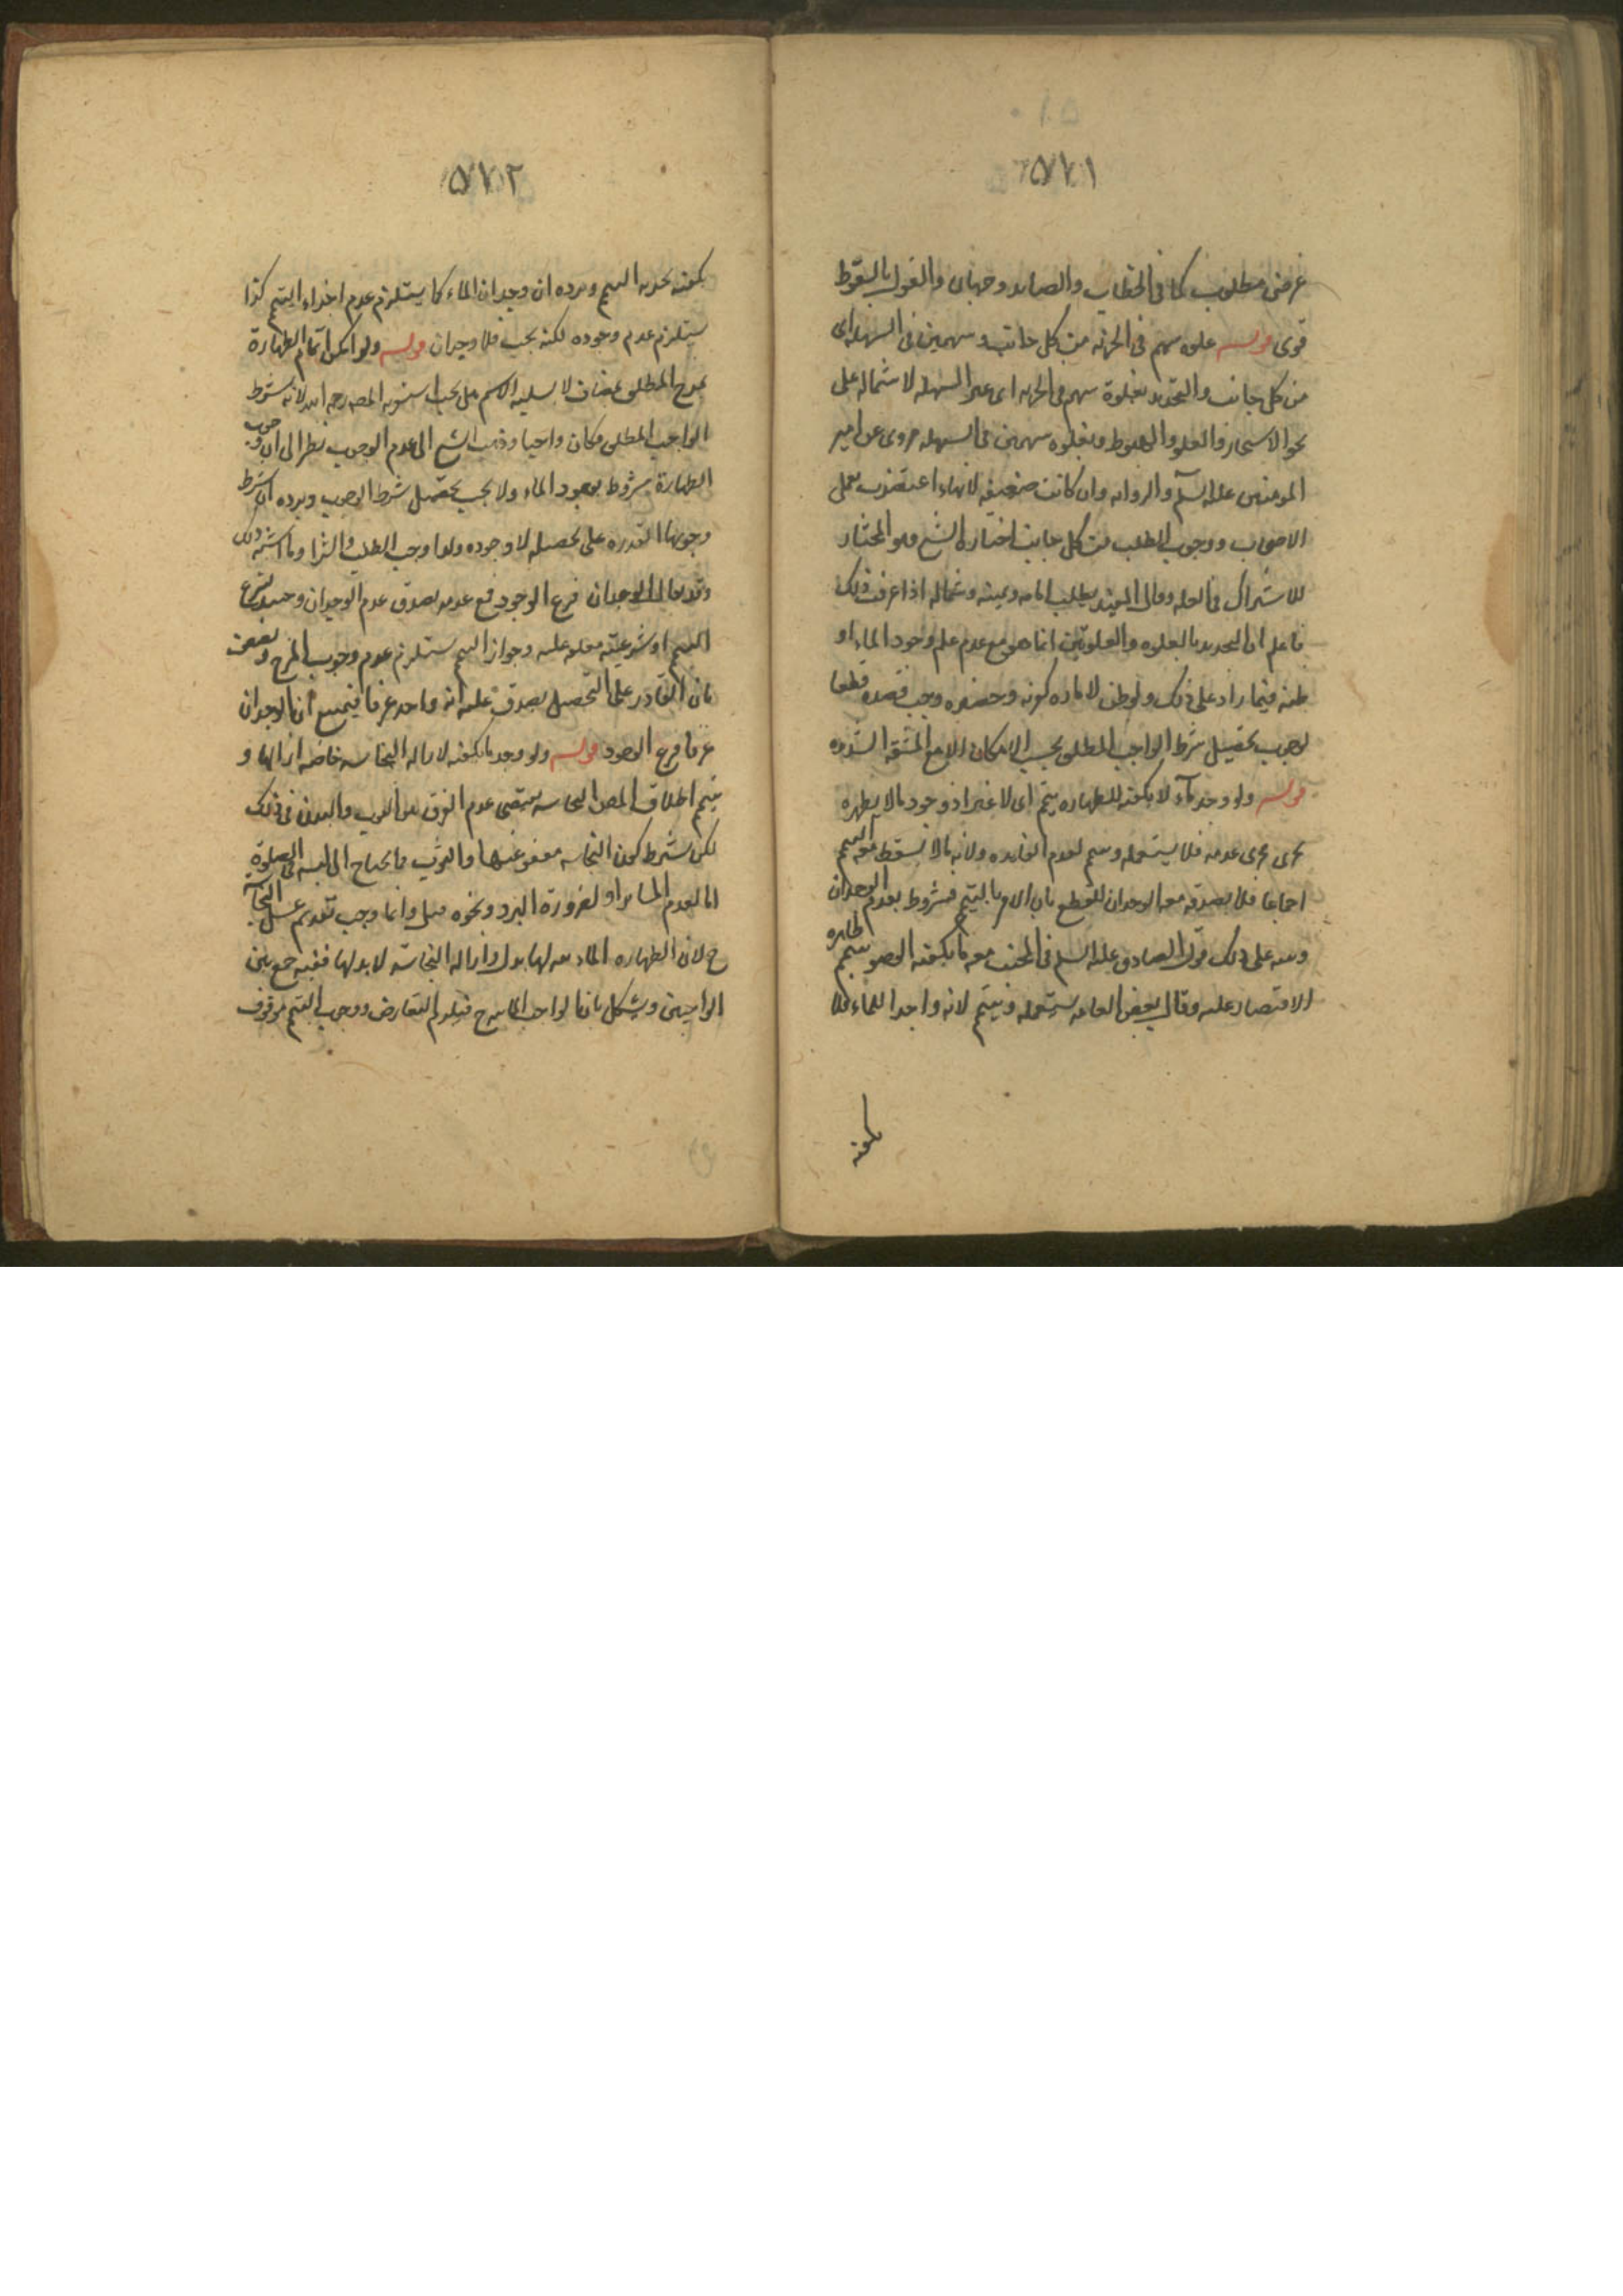 ٥٧١
غرضي مطلوب كما في الحطاب والصائد وجهان والقول بالسقوط
قوى قوله غلوة سهم في الحزنة من كل جانب وسهمين في السهلة اى
من كل جانب والتحديد بغلوة سهم في الحزنة اى غير السهلة لاشتمالها على
نحو الاشجار والعلو والهبوط وبغلوة سهمين في السهلة مروى عن امير
المومنين عليه السلم والرواية وان كانت ضعيفة لانها اعتضدت بعمل
الاصحاب ووجوب الطلب من كل جانب اختاره الشيخ وهو المختار
للاشتراك في العلة وقال المفيد يطلب امامه ويمينه وشماله اذا عرفت ذلك
فاعلم ان التحديد بالغلوة والغلوتين انما هو مع عدم علم وجود الماء او
ظنه فيما زاد على ذلك ولو ظن لامارة كونه وخضره وجب قصده قطعا
لوجوب تحصيل شرط الواجب المطلق بحسب الامكان الا مع المشقة الشديدة
قوله ولو وجد ماء لا يكفيه للطهارة يتيمم اى لا غير اذ وجود ما لا يطهره
يجرى مجرى عدمه فلا يستعمله ويتيمم لعدم الفايدة ولانه ما لا يسقط معه التيمم
اجماعا فلا يصدق معه الوجدان للقطع بان الامر بالتيمم مشروط بعدم الوجدان
ونبه على ذلك قول الصادق عليه السلم في الجنب معه ما يكفيه الوضوء يتيمم ظاهره
الاقتصار عليه وقال بعض العامة يستعمله ويتيمم لانه واجد الماء فلا
يكفيه
٥٧٢
يكفيه بحدية التيمم ويرده ان وجدان الماء كما يستلزم عدم اجزاء التيمم كذا
يستلزم عدم وجوده لكنه يجب فلا وجدان قوله ولو امكن اتمام الطهارة
بمزج المطلق بمضاف لا يسلبه الاسم هل يجب استقربه المص رحمه الله لانه شرط
الواجب المطلق فكان واجبا وذهب الشيخ الى عدم الوجوب نظرا الى ان وجوب
الطهارة مشروط بوجود الماء ولا يجب تحصيل شرط الوجوب ويرده ان شرط
وجوبها القدرة على تحصيله لا وجوده ولهذا وجب الطلب والشرا وما اشبه ذلك
وقد يقال الوجدان فرع الوجود فمع عدمه يصدق عدم الوجدان وحينئذ يشرع
التيمم او شرعيته معلقة عليه وجواز التيمم يستلزم عدم وجوب المزج ويضعف
بان القادر على التحصيل يصدق عليه انه واجد عرفا فيمنع ان الوجدان
عرفا فرع الوجود قوله ولو وجد ما يكفيه لازالة النجاسة خاصة ازالها و
يتيمم اطلاق المص النجاسة يقتضى عدم الفرق بين الثوب والبدن في ذلك
لكن يشترط كون النجاسة معفو عنها والثوب ما يحتاج الى لبسه في الصلوة
اما لعدم الساتر او لضرورة البرد ونحوه وانما وجب تقديم غسل النجاسة
ح لان الطهارة المائية لها بدل وازالة النجاسة لا بدل لها ففيه جمع بين
الواجبين ويشكل بان الواجب المائية ح فيلزم التعارض ووجوب التيمم موقوف